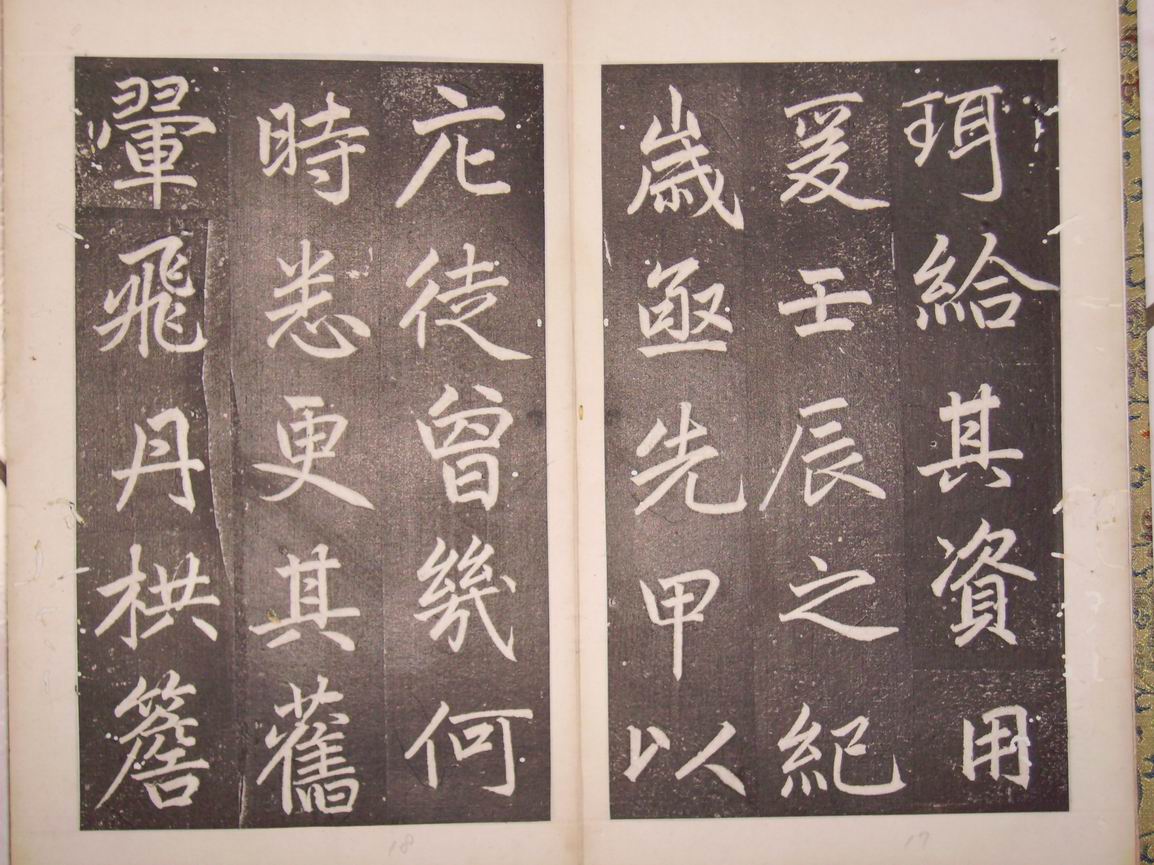 珥給其資用
爰壬辰之紀
歲亟先甲以
庀徒曾幾何
時悉更其舊
翬飛丹栱簷
17
18